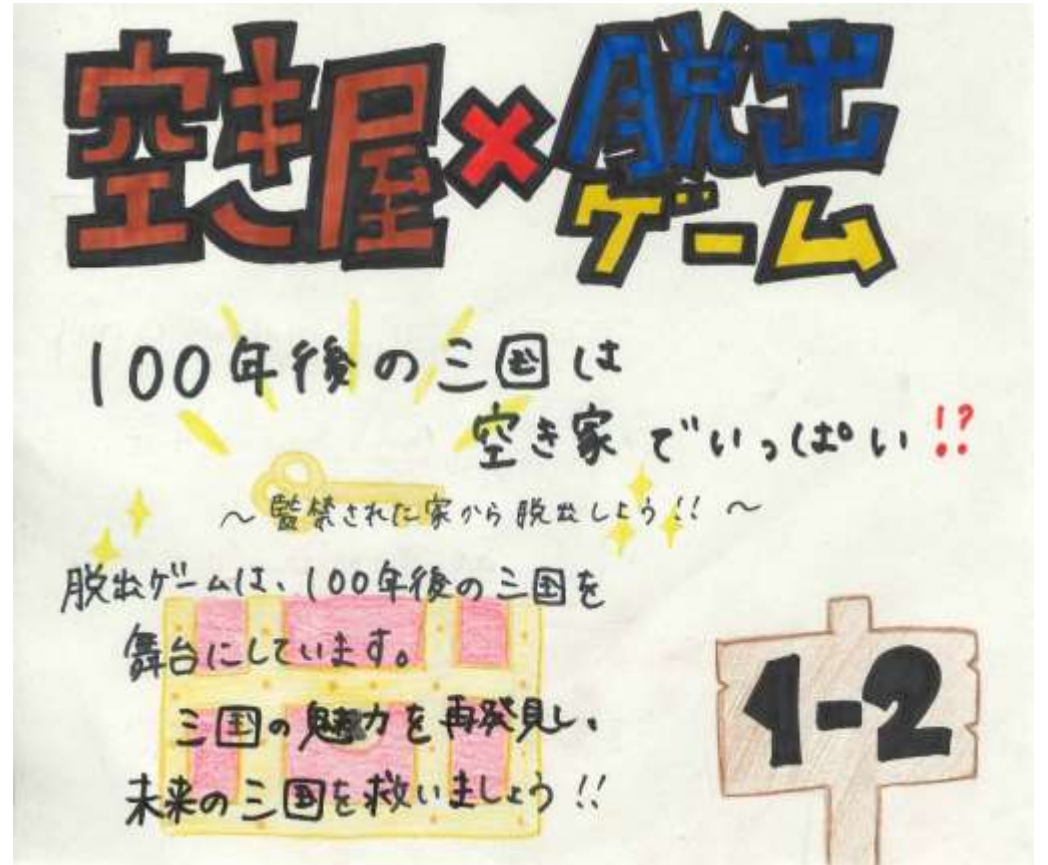 空き屋×脱出
ゲーム
100年後の三国は
空き家でいっぱい!?
～監禁された家から脱出しよう!!～
脱出ゲームは、100年後の三国を
舞台にしています。
三国の魅力を再発見し、
未来の三国を救いましょう!!
1-2